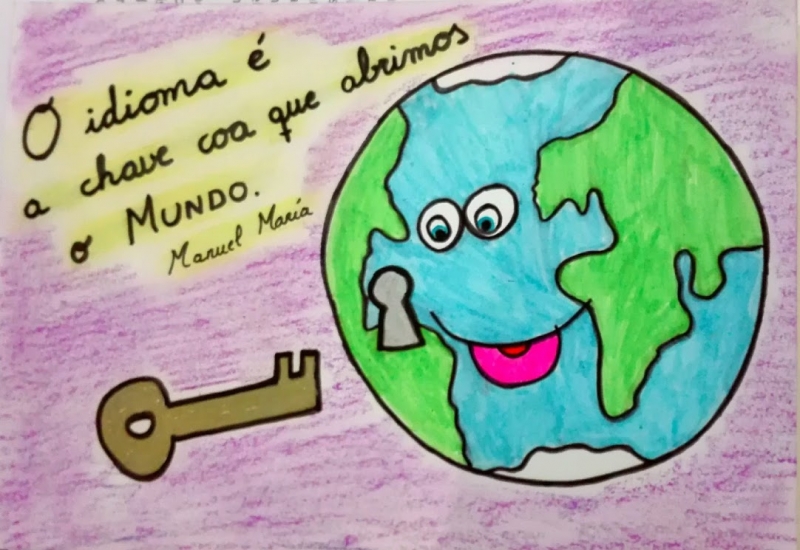 O idioma é
a chave coa que abrimos
o MUNDO.
Manuel María